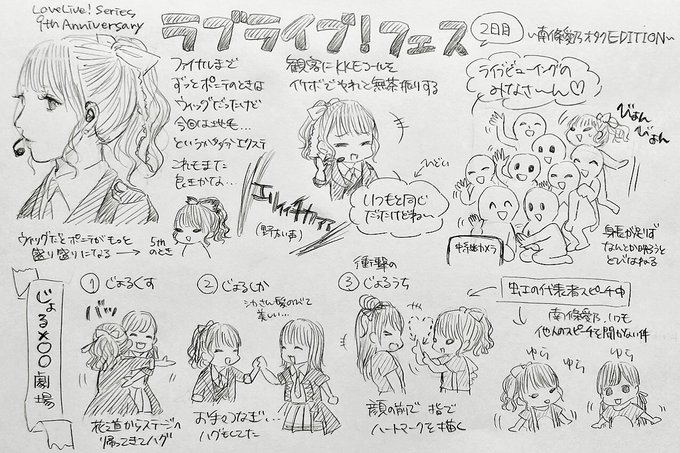 LoveLive! Series
9th Anniversary
ラブライブ!フェス
2日目
~南條愛乃オタクEDITION~
ファイナルまど
ずっとポニテのときは
ウィッグだったけど
今回は地毛…
というかタダのエクステ
これもまた
良きかな…
ウィッグだとポニテがもっと
盛り盛りになる →
5th
のとき
観客にKKEコールを
イケボでやれと無茶振りする
ひどい
いつもと同じ
だったけどね〜
エリーイチカァァ
(野太い声)
ライブビューイングの
みなさ〜ん♡
びょん
びょん
中継カメラ
身長が足りず
なんとか映ろうと
とびはねる
じょる×〇〇劇場
① じょるくす
バッ
花道からステージへ
帰ってきてハグ
② じょるしか
シカさん髪のびて
美しい…
お手々つなぎ…
ハグもしてた
③ 衝撃の
じょるうち
顔の前で指で
ハートマークを描く
虹の代表者スピーチ中
南條愛乃、いつも
他人のスピーチを聞かない件
ゆら
ゆら
ゆら
ゆら